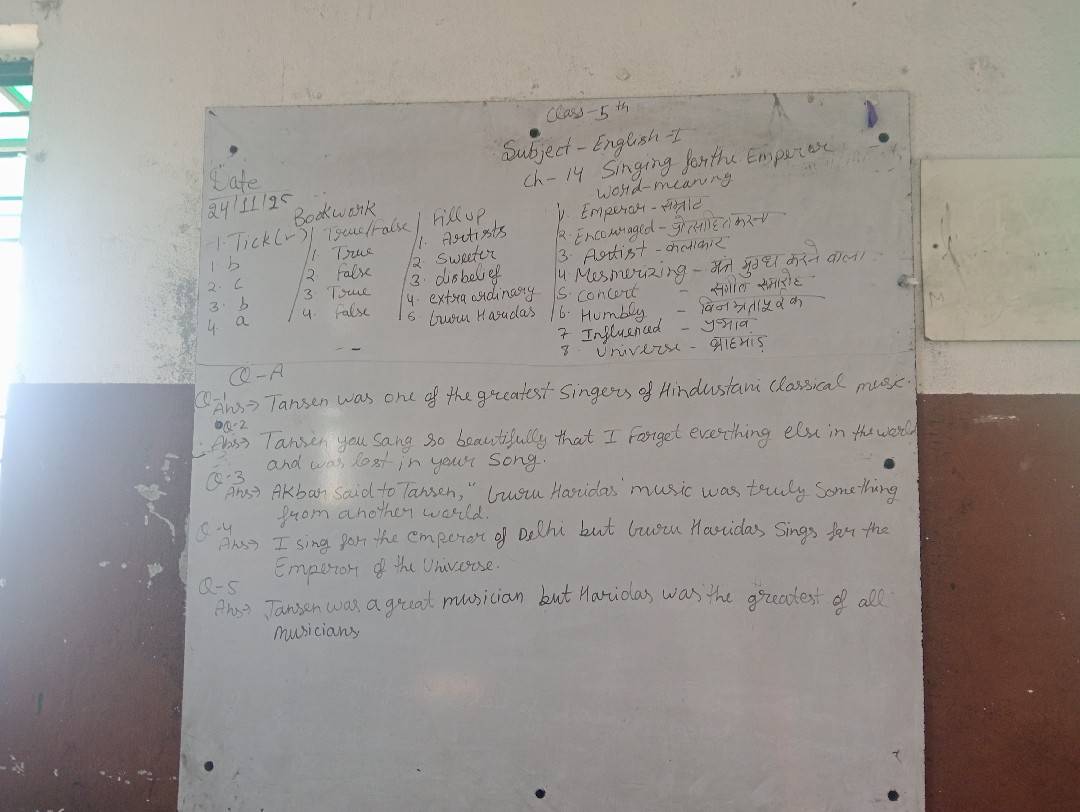 Class - 5th
Subject - English - I
Ch - 14 Singing for the Emperor
word-meaning
Date
24/11/25
Bookwork
1. Tick (✓)
1 b
2. c
3. b
4. a
True/False
1. True
2. False
3. True
4. False
Fill up
1. Artists
2. Sweeter
3. disbelief
4. extra ordinary
5 Guru Haridas
1. Emperor - सम्राट
2. Encouraged - प्रोत्साहित करना
3. Artist - कलाकार
4 Mesmerizing - मंत्र मुग्ध करने वाला
5. Concert - संगीत समारोह
6. Humbly - विनम्रतापूर्वक
7 Influenced - प्रभाव
8. Universe -
Q-A
Q-1
Ans→ Tansen was one of the greatest Singers of Hindustani classical music.
Q-2
Ans→ Tansen you Sang so beautifully that I Forget everthing else in the world
and was lost in your Song.
Q-3
Ans→ Akbar Said to Tansen," Guru Haridas' music was truly Something
from another world.
Q-4
Ans→ I sing for the emperor of Delhi but Guru Haridas Sings for the
Emperor of the Universe.
Q-5
Ans→ Tansen was a great musician but Haridas was the greatest of all
musicians
M